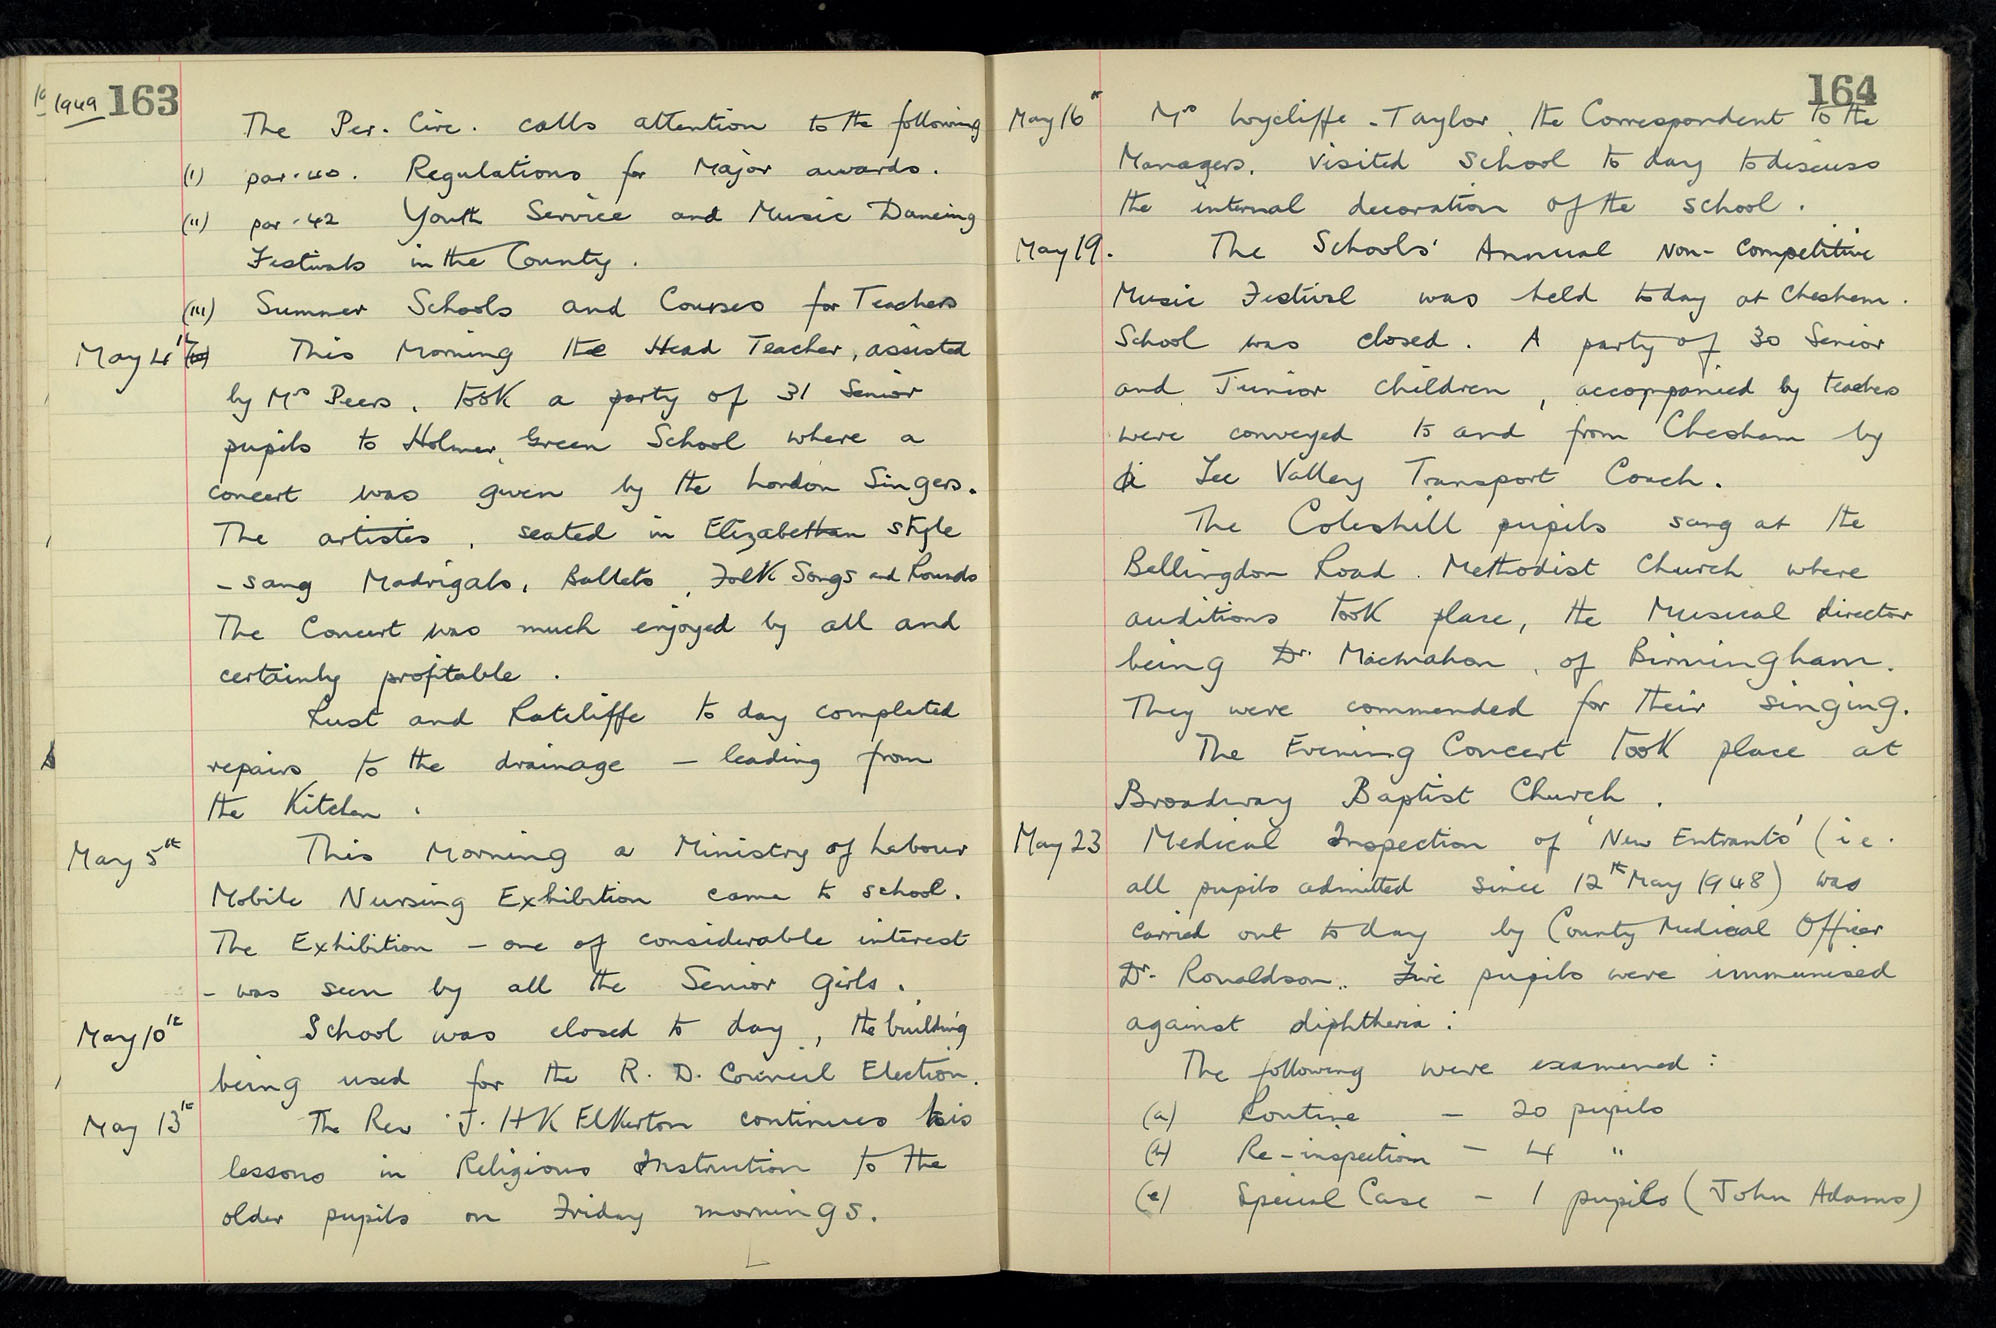 1949 163
The Per. Circ. calls attention to the following
(i) par. 40. Regulations for Major awards.
(ii) par. 42 Youth Service and Music Dancing
Festivals in the County.
(iii) Summer Schools and Courses for Teachers
May 4th This Morning the Head Teacher, assisted
by Mrs Peers, took a party of 31 Senior
pupils to Holmer Green School where a
concert was given by the London Singers.
The artistes, seated in Elizabethan style
- sang Madrigals, Ballets, Folk Songs and Rounds
The Concert was much enjoyed by all and
certainly profitable.
Rust and Ratcliffe to day completed
repairs to the drainage - leading from
the Kitchen.
May 5th This Morning a Ministry of Labour
Mobile Nursing Exhibition came to school.
The Exhibition - one of considerable interest
- was seen by all the Senior girls.
May 10th School was closed to day, the building
being used for the R. D. Council Election.
May 13th The Rev J. H K Elkerton continues his
lessons in Religious Instruction to the
older pupils on Friday mornings.
164
May 16th Mrs Wycliffe-Taylor, the Correspondent to the
Managers, visited School to day to discuss
the internal decoration of the school.
May 19. The Schools' Annual Non-Competitive
Music Festival was held today at Chesham.
School was closed. A party of 30 Senior
and Junior children, accompanied by teachers
were conveyed to and from Chesham by
a Lee Valley Transport Coach.
The Coleshill pupils sang at the
Bellingdon Road Methodist Church where
auditions took place, the Musical director
being Dr. MacMahon, of Birmingham.
They were commended for their singing.
The Evening Concert took place at
Broadway Baptist Church.
May 23 Medical Inspection of 'New Entrants' (i e.
all pupils admitted since 12th May 1948) was
carried out to day by County Medical Officer
Dr. Ronaldson. Five pupils were immunised
against diphtheria:
The following were examined:
(a) Routine - 20 pupils
(b) Re-inspection - 4 "
(c) Special Case - 1 pupils (John Adams)